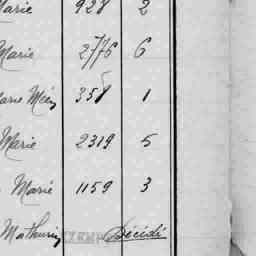 Marie 928 2
Marie 2776 6
Marie 358 1
Marie 2319 5
Marie 1159 3
Mathurin Décédé